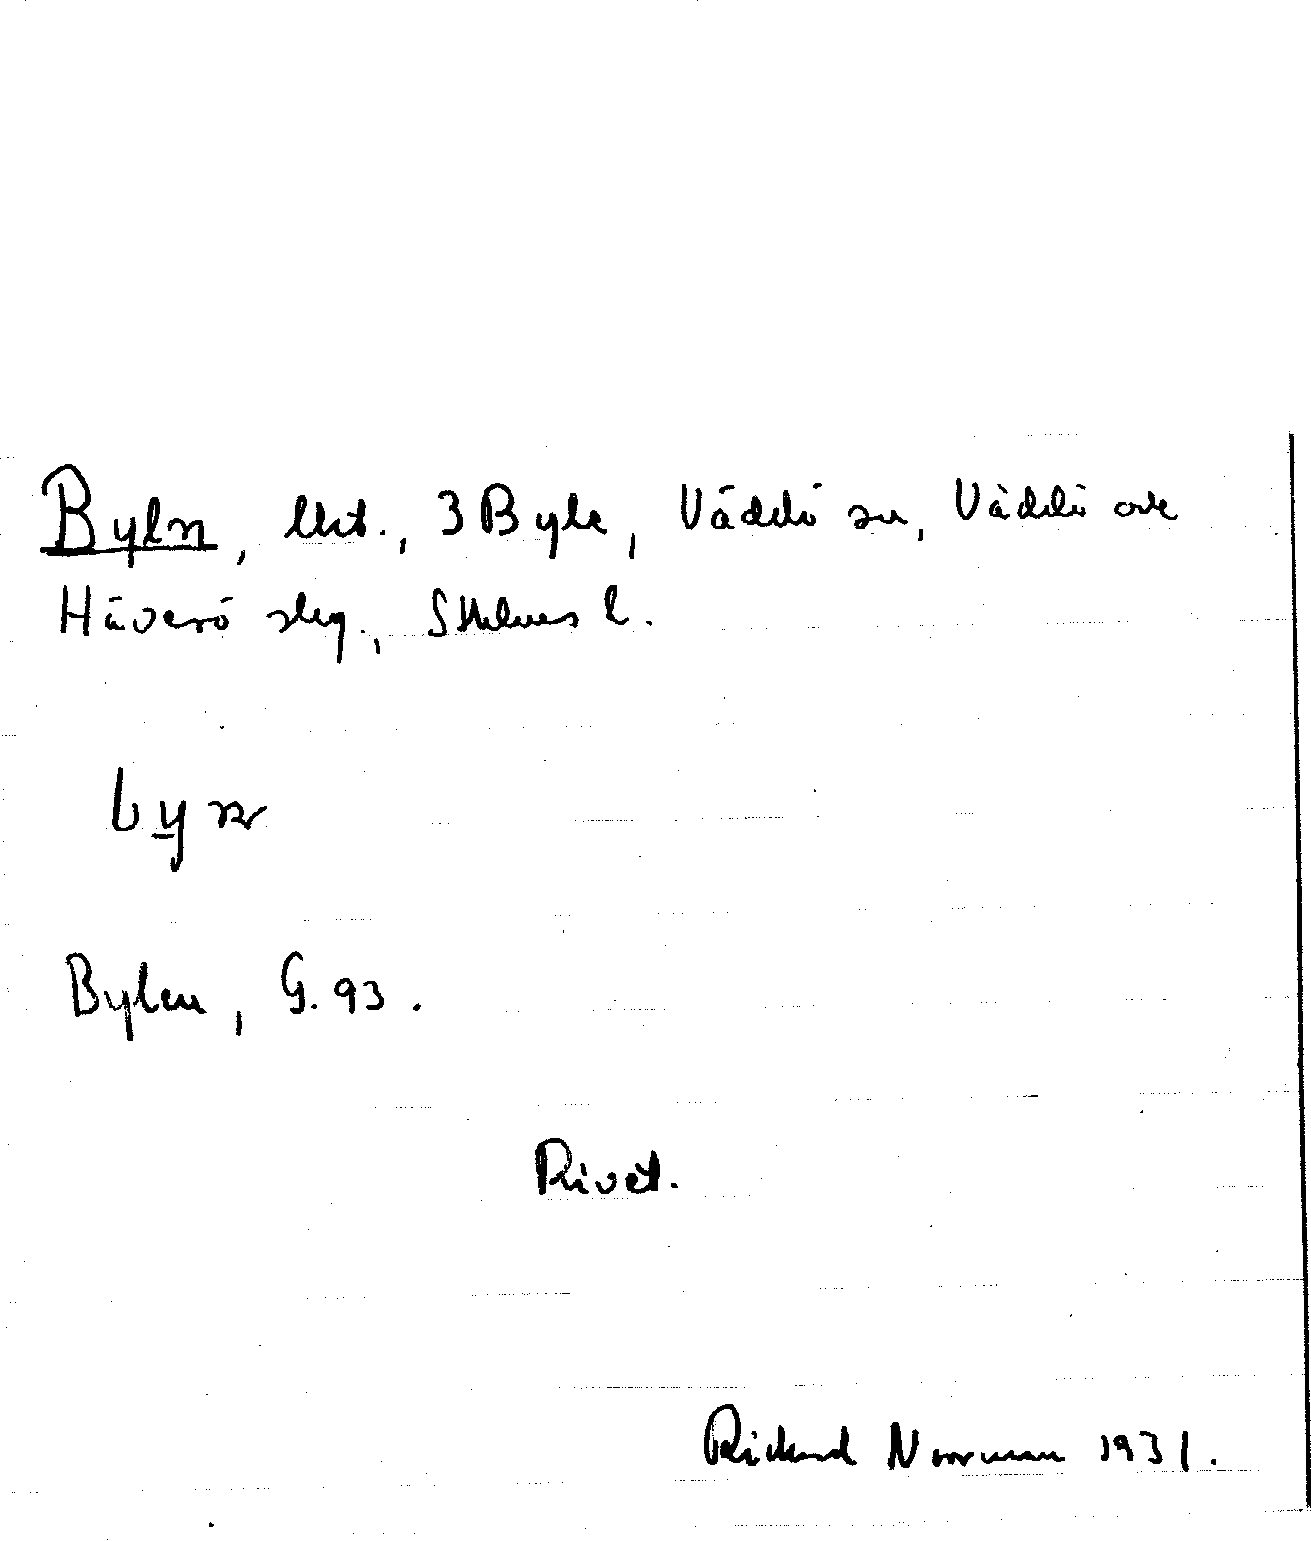 Byln, lht., 3 Byle, Väddö sn, Väddö och
Häverö skg., Sthlms l.
Bylen, G. 93.
Rivet.
Rickard Norrman 1931.